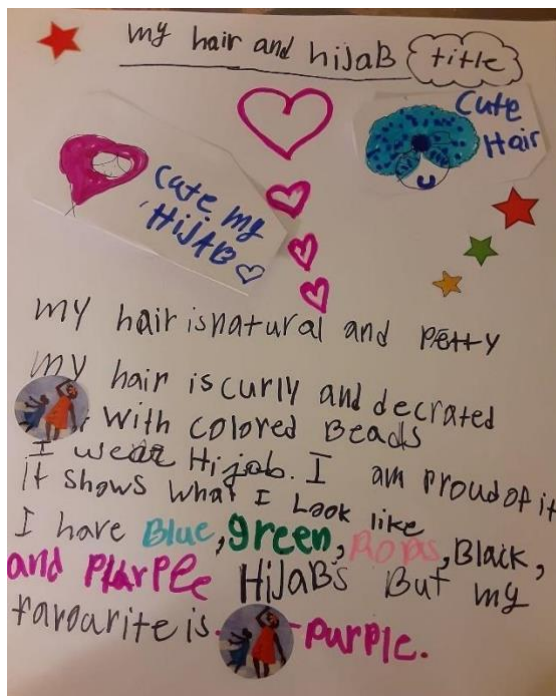 my hair and hijaB title
Cute Hair
Cute my HiJAB
my hair is natural and Petty
my hair is curly and decrated
With colored Beads
I wear Hijab. I am proud of it
It shows what I Look like
I have Blue, green, , Black,
and PLarPLe HiJaBs But my
favourite is
purple.